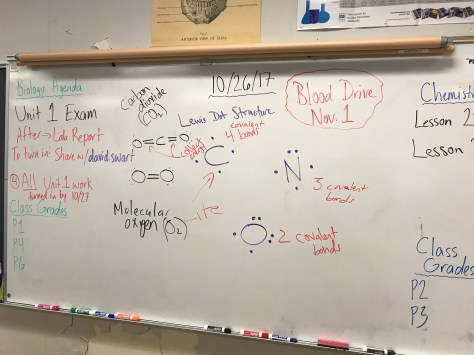 Biology Agenda
Unit 1 Exam
After → Lab Report
To turn in: Share w/ david.swart
All Unit 1 work
turned in by 10/27
Class Grades
P1
P4
P6
Carbon
dioxide
(CO2)
O=C=O
O=O
Molecular
oxygen (O2)
10/26/17
Lewis Dot Structure
covalent
4 bonds
C
N
3 covalent
bonds
O
2 covalent
bonds
Blood Drive
Nov. 1
Chemist
Lesson 2
Lesson
Class
Grades
P2
P3